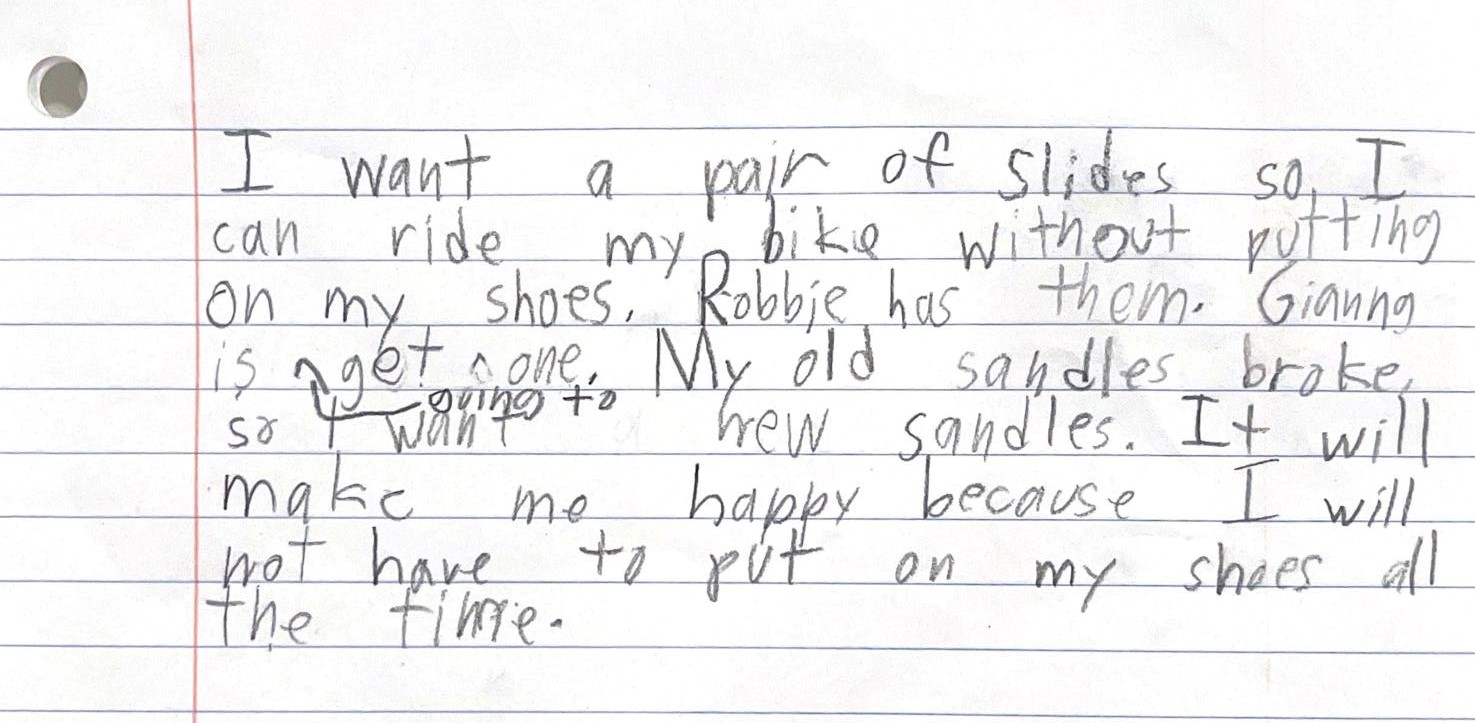 I want a pair of slides so I
can ride my bike without putting
on my shoes. Robbie has them. Gianna
is going to get one. My old sandles broke,
so I want new sandles. It will
make me happy because I will
not have to put on my shoes all
the time.